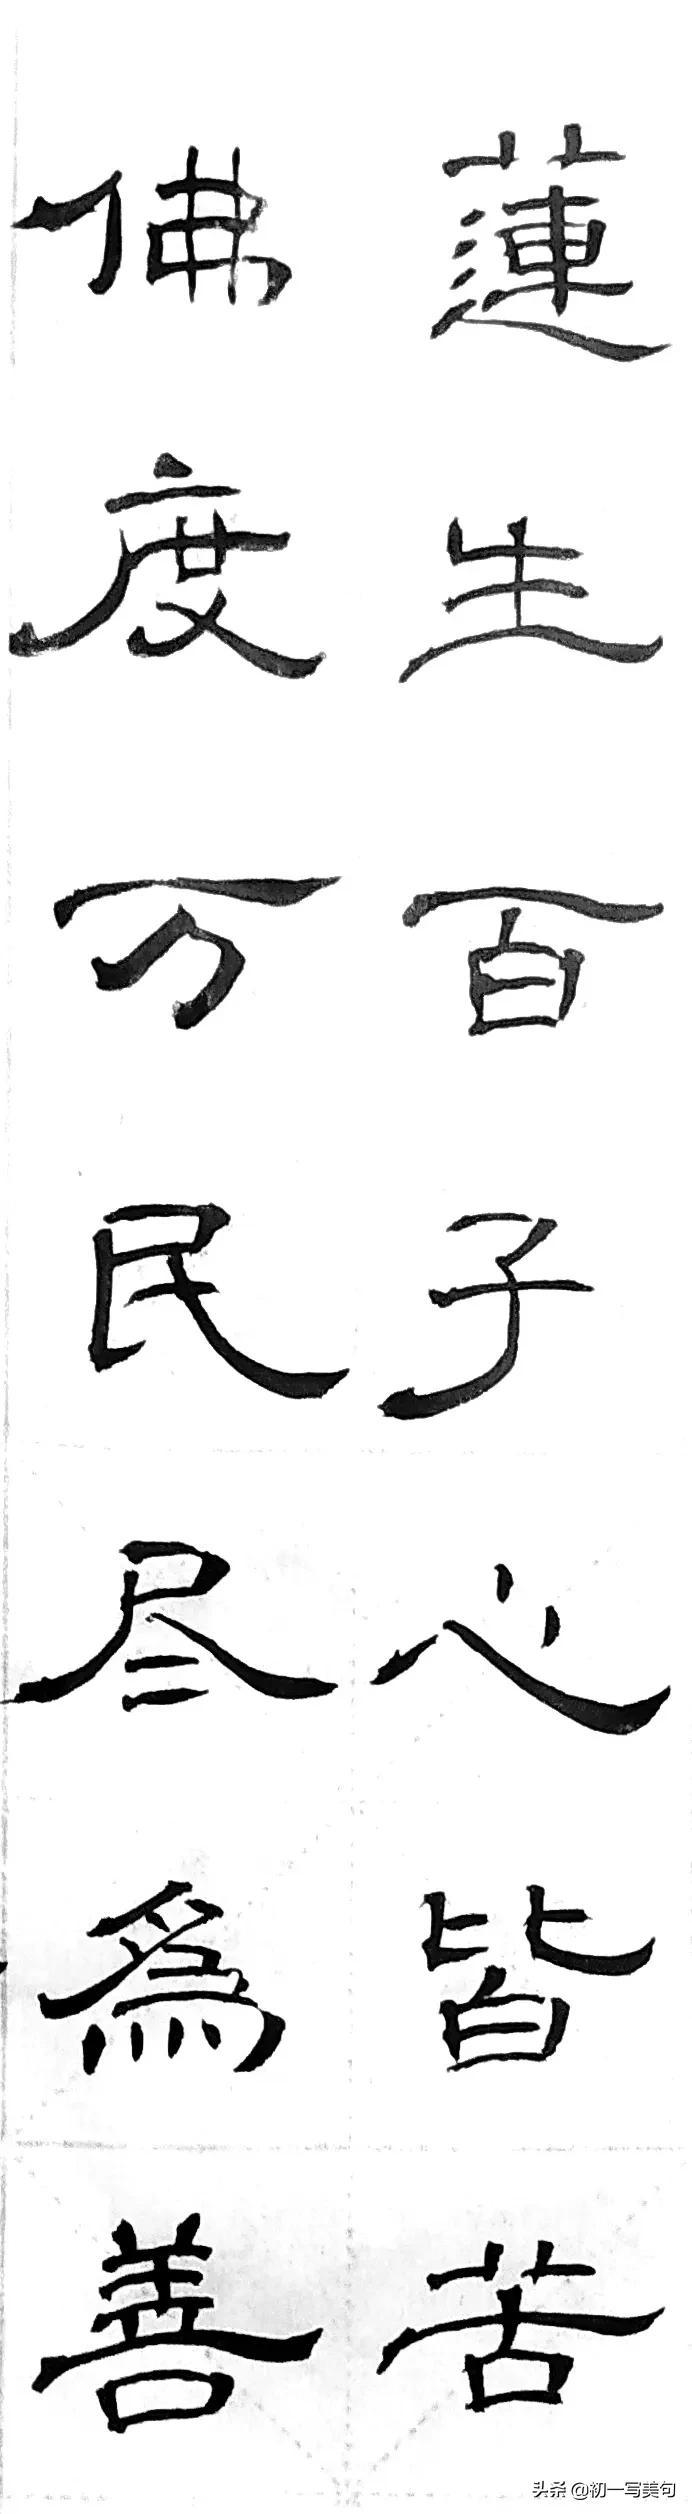 蓮生百子心皆苦
佛度万民尽為善
头条 @初一写美句